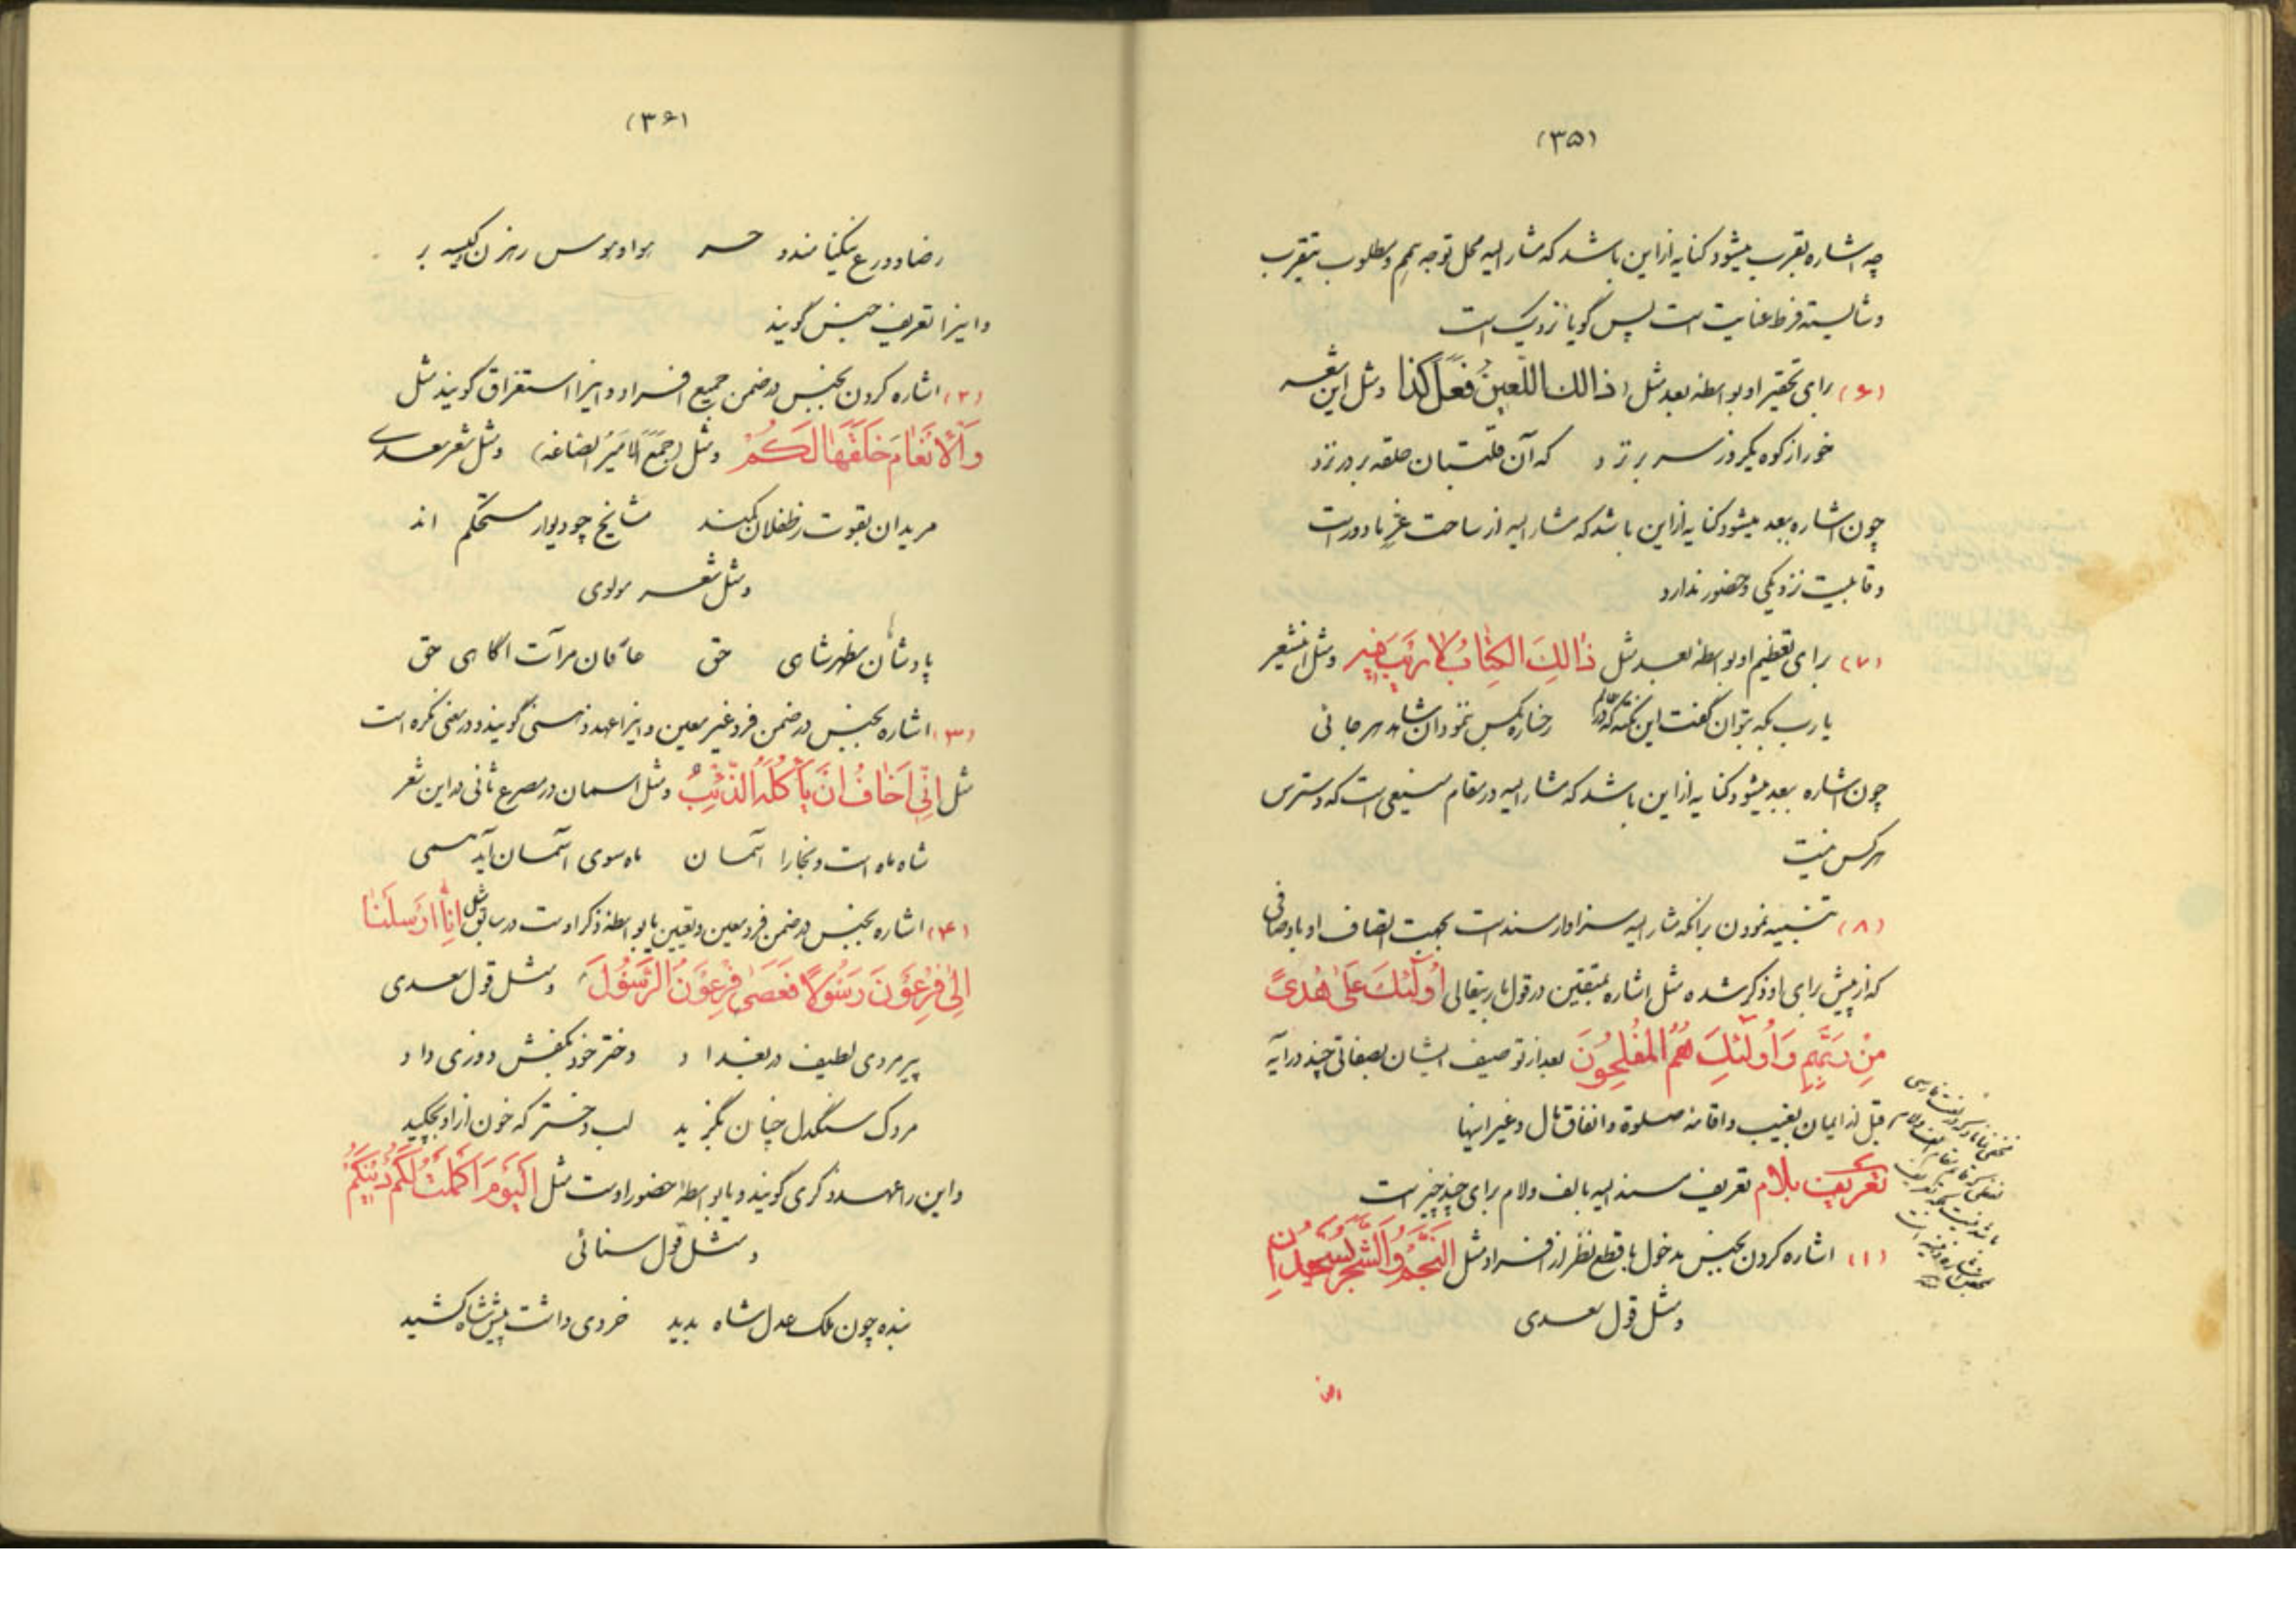 (۳۵)
چه اشاره بقرب میشود کنایه از این باشد که مشار الیه محل توجه تمم و مطلوب بتقرب
و شایسته فرط عنایت است پس گویا نزدیک است
(۶) برای تحقیر او بواسطه بعد مثل (ذالك اللعین فعل کذا) و مثل این شعر
خور از کوه یکروز سر بر نزد که آن قلتبان حلقه بر در نزد
چون اشاره ببعد میشود کنایه از این باشد که مشار الیه از ساحت عز ما دور است
و قابلیت نزدیکی و حضور ندارد
(۷) برای تعظیم او بواسطه بعد مثل ذٰالِكَ الكِتٰابُ لا رَیبَ فیهِ و مثل اینشعر
یا رب بکه بتوان گفت این نکته که در عالم رخساره بکس ننمود آن شاهد هر جائی
چون اشاره ببعد میشود کنایه از این باشد که مشار الیه در مقام منیعی است که دسترس
هر کس نیست
(۸) تنبیه نمودن بر آنکه مشار الیه سزاوار مسند است بجهت اتصاف او باوصافی
که از پیش برای او ذکر شده مثل اشاره بمتقین در قول باریتعالی اُولٰئِكَ عَلیٰ هُدیً
مِن رَبِّهِم وَاُولٰئِكَ هُمُ المُفلِحُونَ بعد از توصیف ایشان بصفاتی چند در آیه
قبل از ایمان بغیب و اقامه صلوة و انفاق مال و غیر اینها
تعریف بلام تعریف مسند الیه بالف و لام برای چند چیز است
(۱) اشاره کردن بجنس مدخول با قطع نظر از افراد مثل النَّجمُ وَالشَّجَرُ یَسجُدانِ
و مثل قول سعدی
(۳۶)
رضا و ورع نیکنامند و حر هوا و هوس رهزن کیسه بر
و اینرا تعریف جنس گویند
(۲) اشاره کردن بجنس در ضمن جمیع افراد و اینرا استغراق گویند مثل
وَالاَنعٰامَ خَلَقَهٰا لَكُم و مثل (جَمَعَ الاَمیرُ الصاغه) و مثل شعر سعدی
مریدان بقوت ز طفلان کمند مشایخ چو دیوار مستحکم اند
و مثل شعر مولوی
پادشاهان مظهر شاهی حق عارفان مرآت آگاهی حق
(۳) اشاره بجنس در ضمن فرد غیر معین و اینرا عهد ذهنی گویند و در معنی نکره است
مثل اِنّی اَخٰافُ اَن یَأکُلَهُ الذِّئبُ و مثل اسمان در مصرع ثانی در این شعر
شاه ماه است و بخارا آسمان ماه سوی آسمان آید همی
(۴) اشاره بجنس در ضمن فرد معین و تعیین یا بواسطه ذکر اوست در سابق مثل اِنّٰا اَرسَلنٰا
اِلیٰ فِرعَونَ رَسُولاً فَعَصیٰ فِرعَونُ الرَّسُولَ و مثل قول سعدی
پیر مردی لطیف در بغداد دختر خود بکفش دوزی داد
مردک سنگدل چنان بگزید لب دختر که خون از او بچکید
و این را عهد ذکری گویند و یا بواسطه حضور اوست مثل اَلیَومَ اَکمَلتُ لَکُم دینَکُم
و مثل قول سنائی
بنده چون ملک عدل شاه بدید خردی داشت پیش شاه کشید